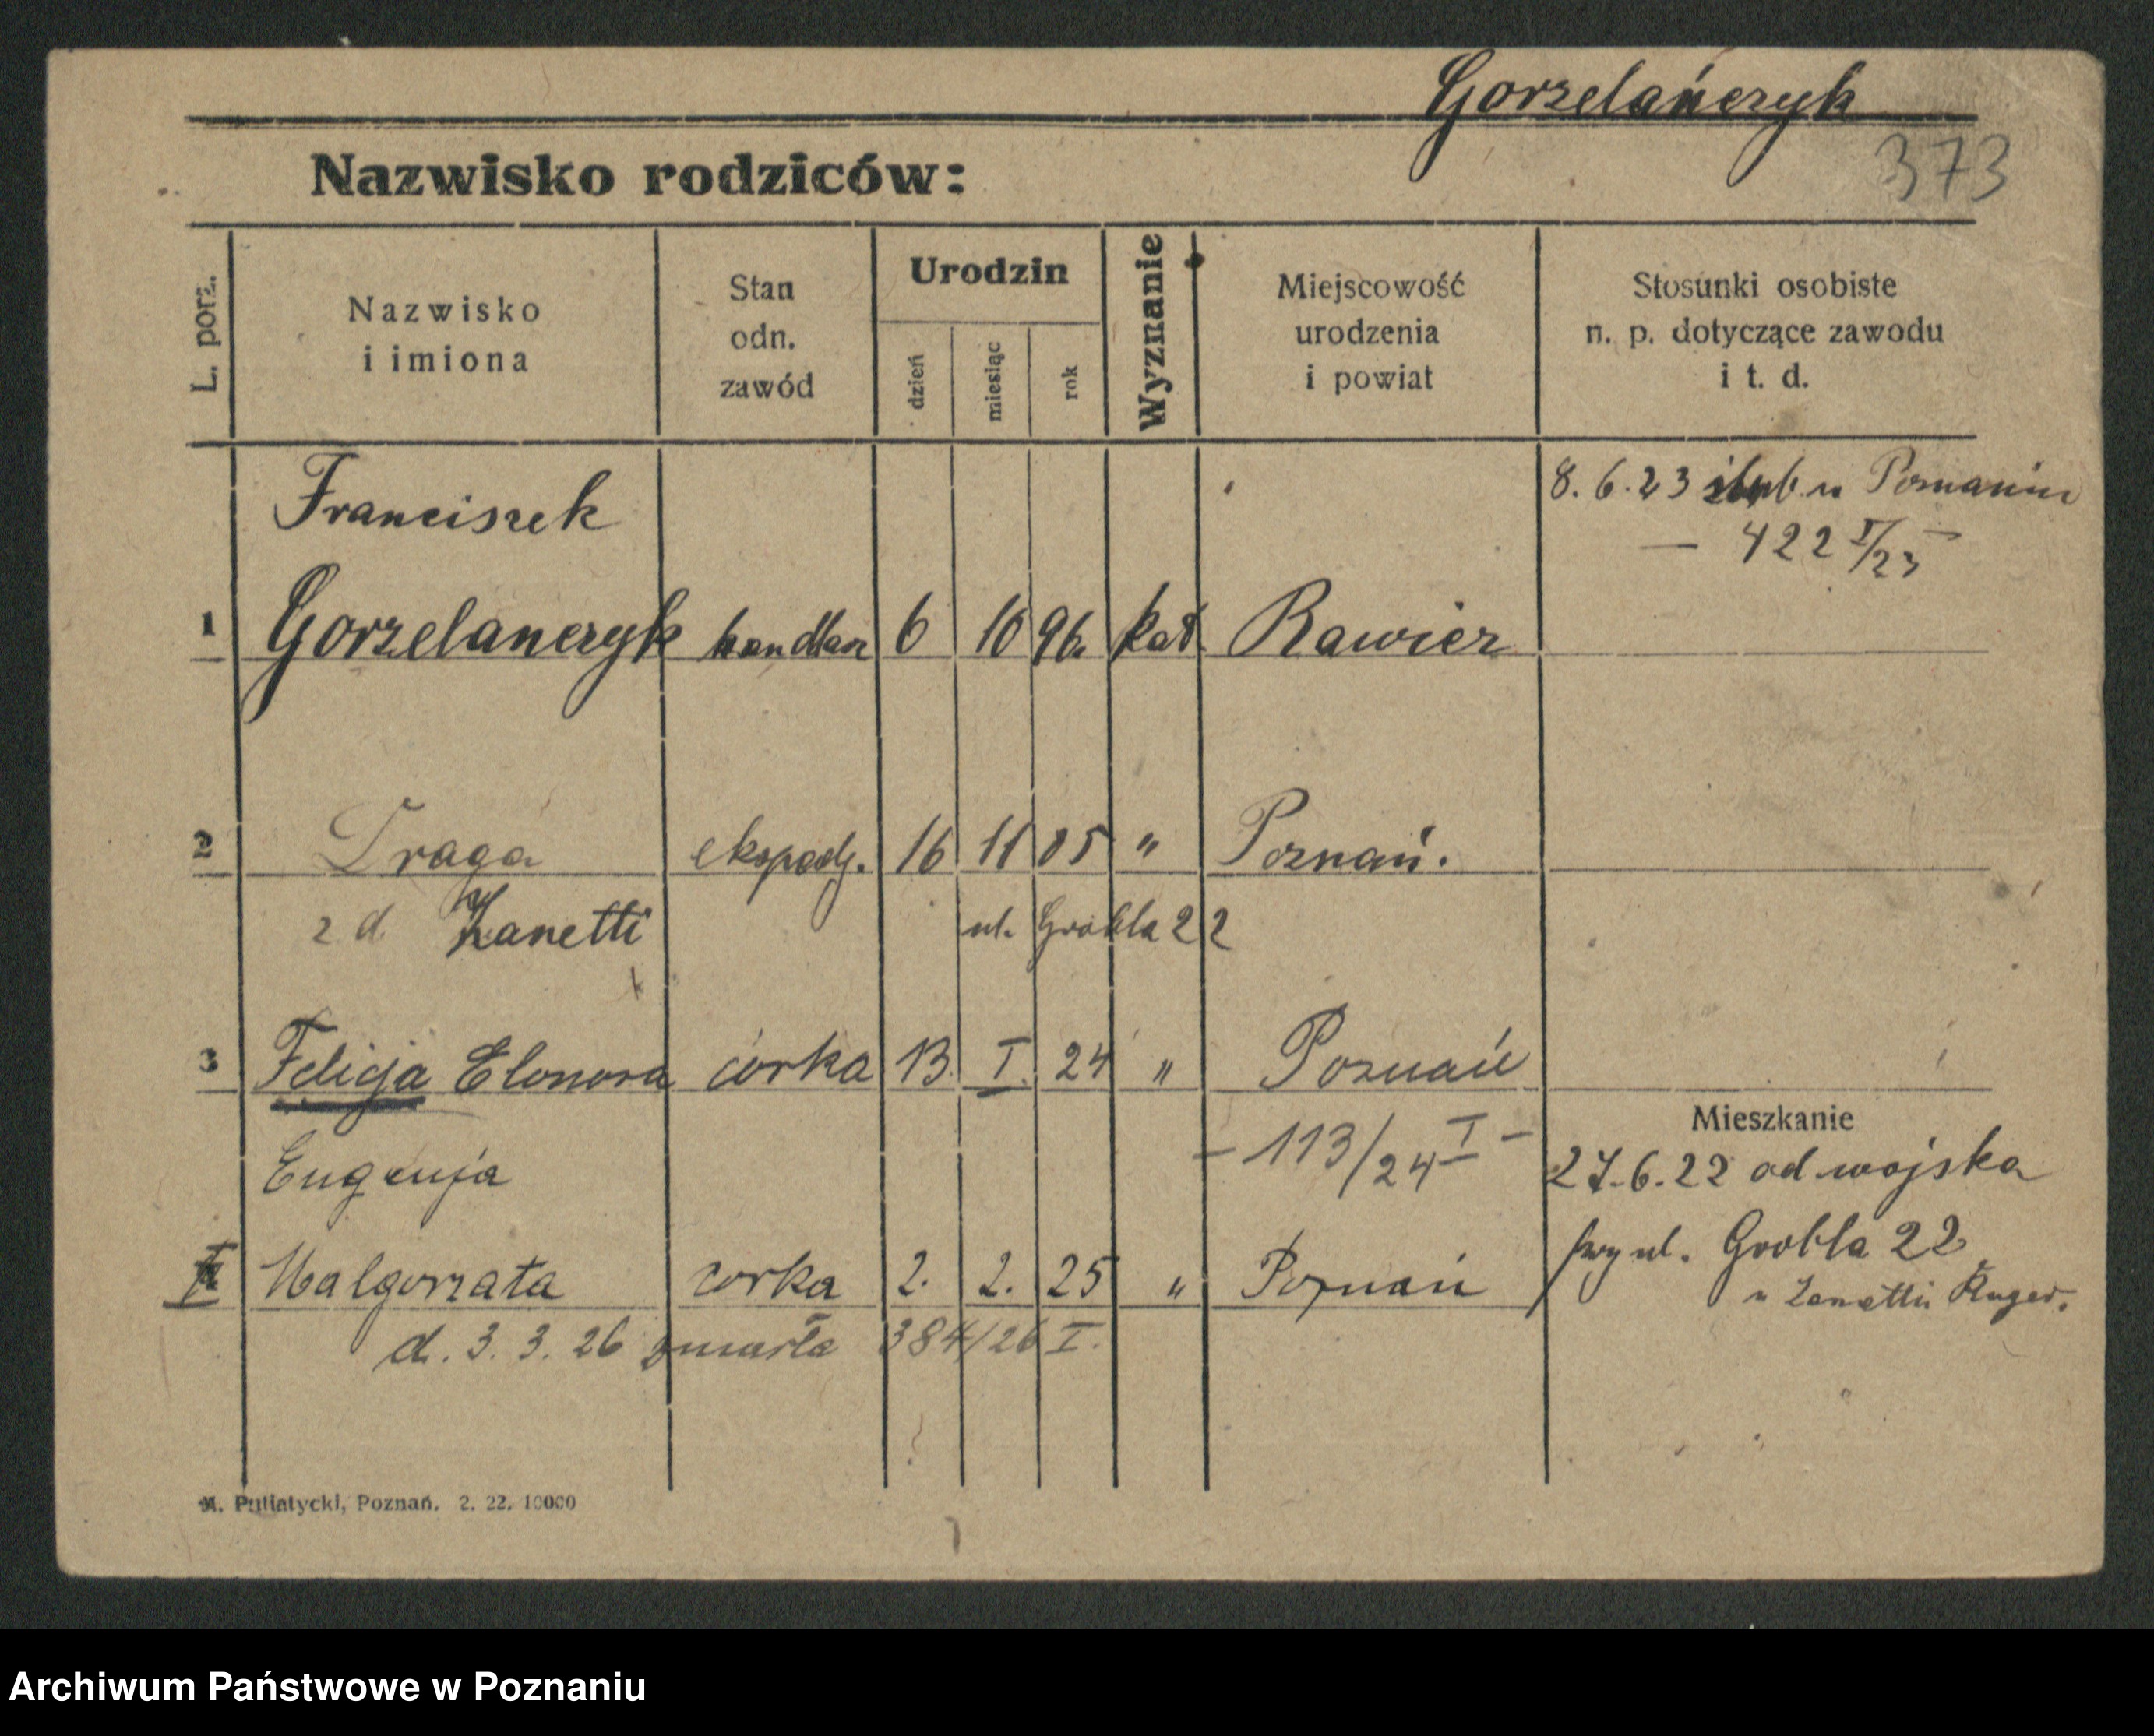 Gorzelańczyk
373
Nazwisko rodziców:
L. porz.
Nazwisko
i imiona
Stan
odn.
zawód
Urodzin
dzień
miesiąc
rok
Wyznanie
Miejscowość
urodzenia
i powiat
Stosunki osobiste
n. p. dotyczące zawodu
i t. d.
8. 6. 23 ślub w Poznaniu
— 422 I/23 —
Franciszek
1 Gorzelanczyk handlarz 6 10 96. kat. Rawicz
2 Draga ekspedj. 16 11 05 " Poznań.
z d. Zanetti ul. Grobla 22
3 Felicja Elonora córka 13. I. 24 " Poznań
Eugenja - 113/24 I -
Mieszkanie
27.6.22 od wojska
przy ul. Grobla 22
u Zanettii
Malgorzata corka 2. 2. 25 " Poznań
d. 3. 3. 26 zmarła 384/26 I.
Poznań. 2. 22. 10000
Archiwum Państwowe w Poznaniu